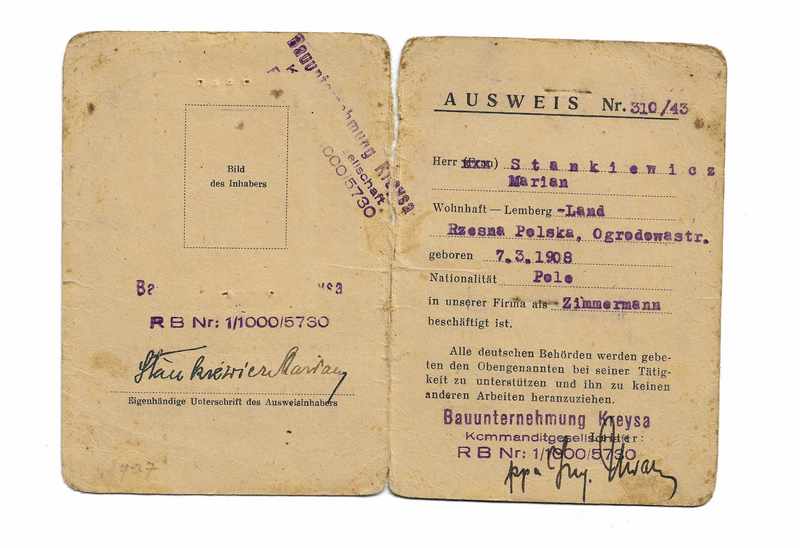 Bauunternehmung Kreysa
Kommanditgesellschaft
1/1000/5730
Bild
des Inhabers
RB Nr: 1/1000/5730
Stankiewicz Marian
Eigenhändige Unterschrift des Ausweisinhabers
AUSWEIS Nr. 310/43
Herr (Frau) Stankiewicz
Marian
Wohnhaft — Lemberg -Land
Rzesna Polska, Ogrodowastr.
geboren 7.3.1908
Nationalität Pole
in unserer Firma als Zimmermann
beschäftigt ist.
Alle deutschen Behörden werden gebe-
ten den Obengenannten bei seiner Tätig-
keit zu unterstützen und ihn zu keinen
anderen Arbeiten heranzuziehen.
Bauunternehmung Kreysa
Kommanditgesellschaft
RB Nr: 1/1000/5730
ppa Ing.